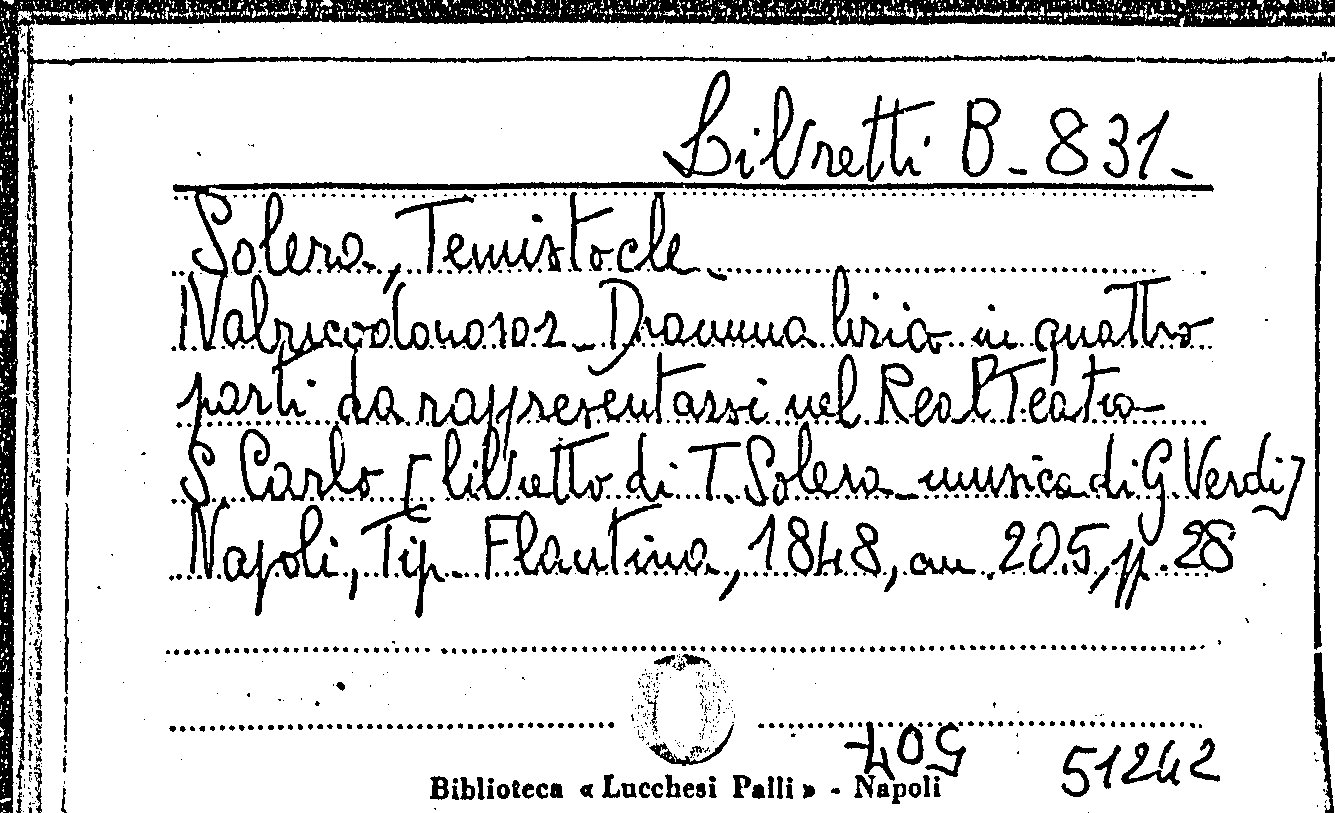 Libretti B - 831 -
Solera, Temistocle -
Nabucodonosor - Dramma lirico in quattro
parti da rappresentarsi nel Real Teatro
S. Carlo [libretto di T. Solera - musica di G. Verdi]
Napoli, Tip. Flautina, 1848, cm. 20.5, pp. 28
507
51242
Biblioteca « Lucchesi Palli » - Napoli